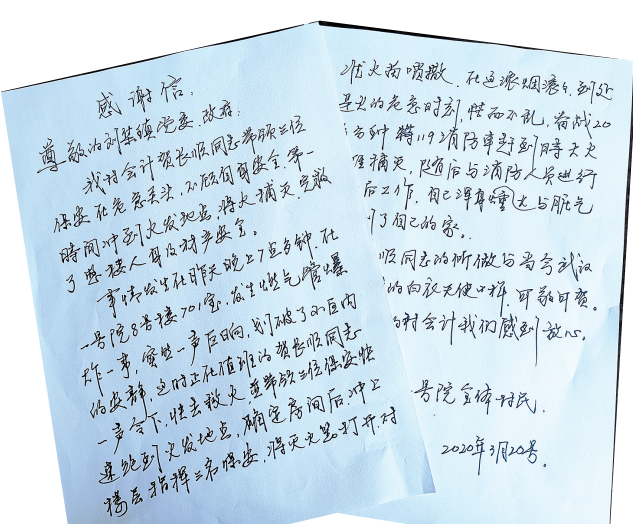 感谢信:
尊敬的刘某镇党委、政府:
我村会计贺长顺同志带领三位
保安在危急关头,不顾自身安全,第一
时间冲到火发地点,将火扑灭,完救
了整楼人身及财产安全。
事情发生在昨天晚上7点多钟,在
一号院8号楼701室,发生燃气管爆
炸一事,突然一声巨响,划破了小区内
的安静,这时正在值班的贺长顺同志
一声令下,快去救火,并带领三位保安快
速跑到火发地点,确定房间后冲上
楼层指挥三名保安,将灭火器打开对
准火苗喷撒,在这浓烟滚滚,到处
是火的危急时刻,惊而不乱,奋战20
多分种,等119消防车来到时大火
扑灭,随后与消防人员进行
后工作,自己浑身烟火与脏气
到了自己的家。
顺同志的所做与当今武汉
的白衣天使一样,可敬可贺。
的村会计我们感到放心。
号院全体村民。
2020年3月20号。